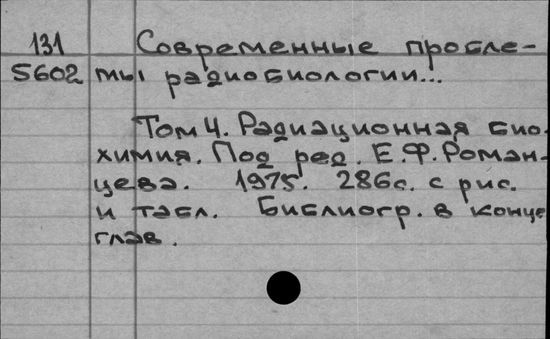 131 Современные пробле-
5602 мы радиобиологии...
Том 4. Радиационная био-
химия. Под ред. Е.Ф.Роман-
цева. 1975. 286с. с рис.
и табл. Библиогр. в конце
глав.